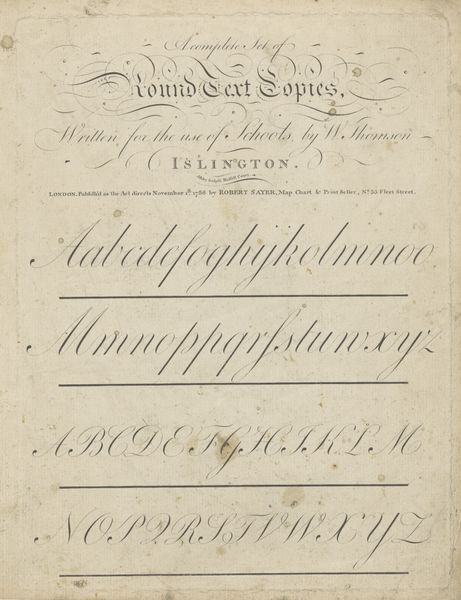 A complete Set of
Round Text Copies,
Written for the use of Schools, by W. Thomson
ISLINGTON.
LONDON, Publish'd as the Act directs November 1st. 1786 by ROBERT SAYER, Map, Chart & Print Seller, No. 53 Fleet Street.
Aabcdefoghijkolmnoo
Mmnoppqrſstuwxyz
ABCDEFGHIJKLM
NOPQRSTVWXYZ